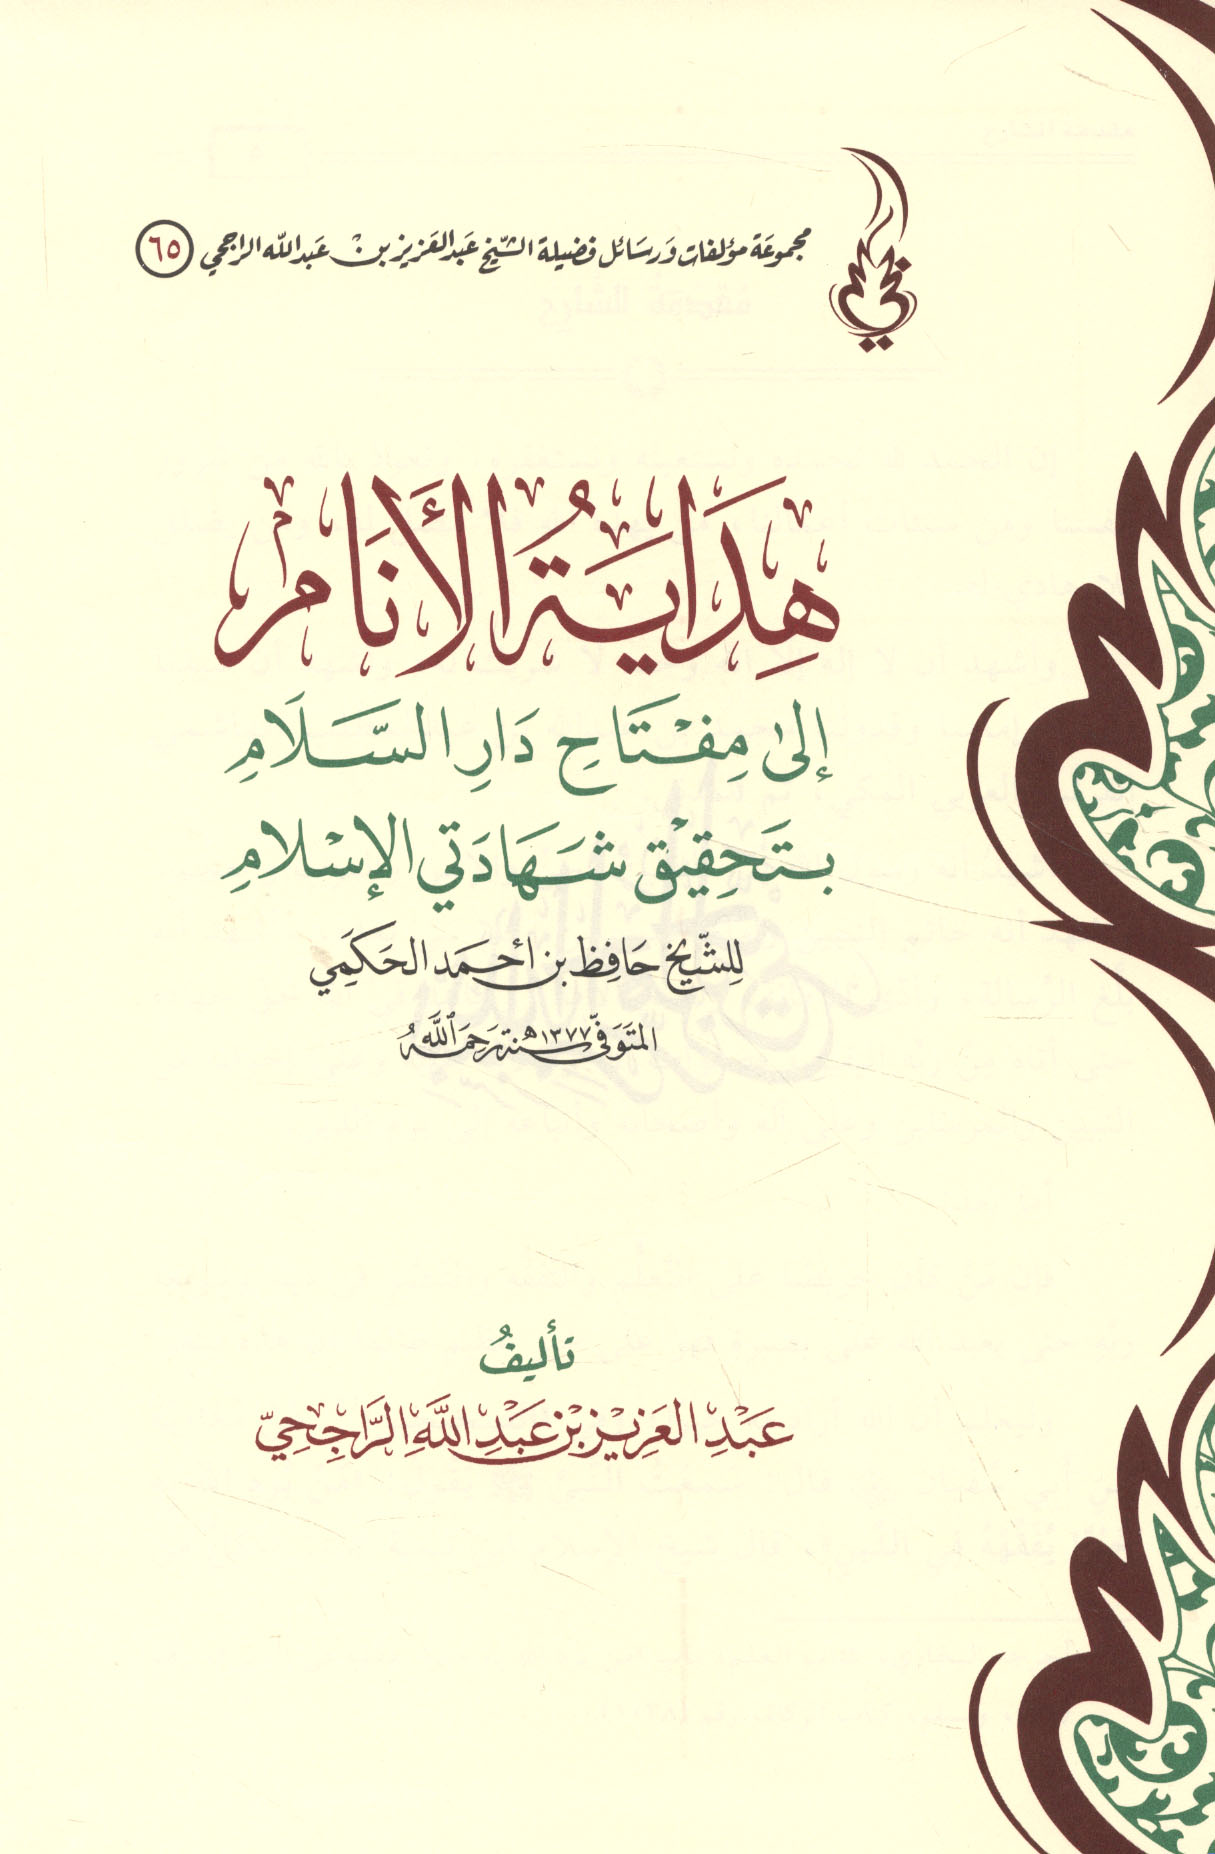 مجموعة مؤلفات ورسائل فضيلة الشيخ عبد العزيز بن عبد الله الراجحي ٦٥
هِدَايَةُ الأَنَام
إلىٰ مِفْتَاحِ دَارِ السَّلَامِ
بتَحقِيْقِ شَهَادَتي الإسْلامِ
للشَّيخ حَافِظ بن أحمَد الحَكَمي
المتَوَفّى سنة ١٣٧٧هـ رَحِمَهُ ٱللَّهُ
تأليفُ
عَبْدِ العَزِيْزِ بْنِ عَبْدِ اللَّهِ الرَّاجِحِيّ